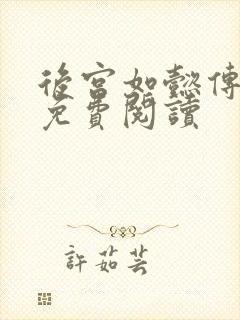 後宮如懿傳
免費閱讀
許茹芸